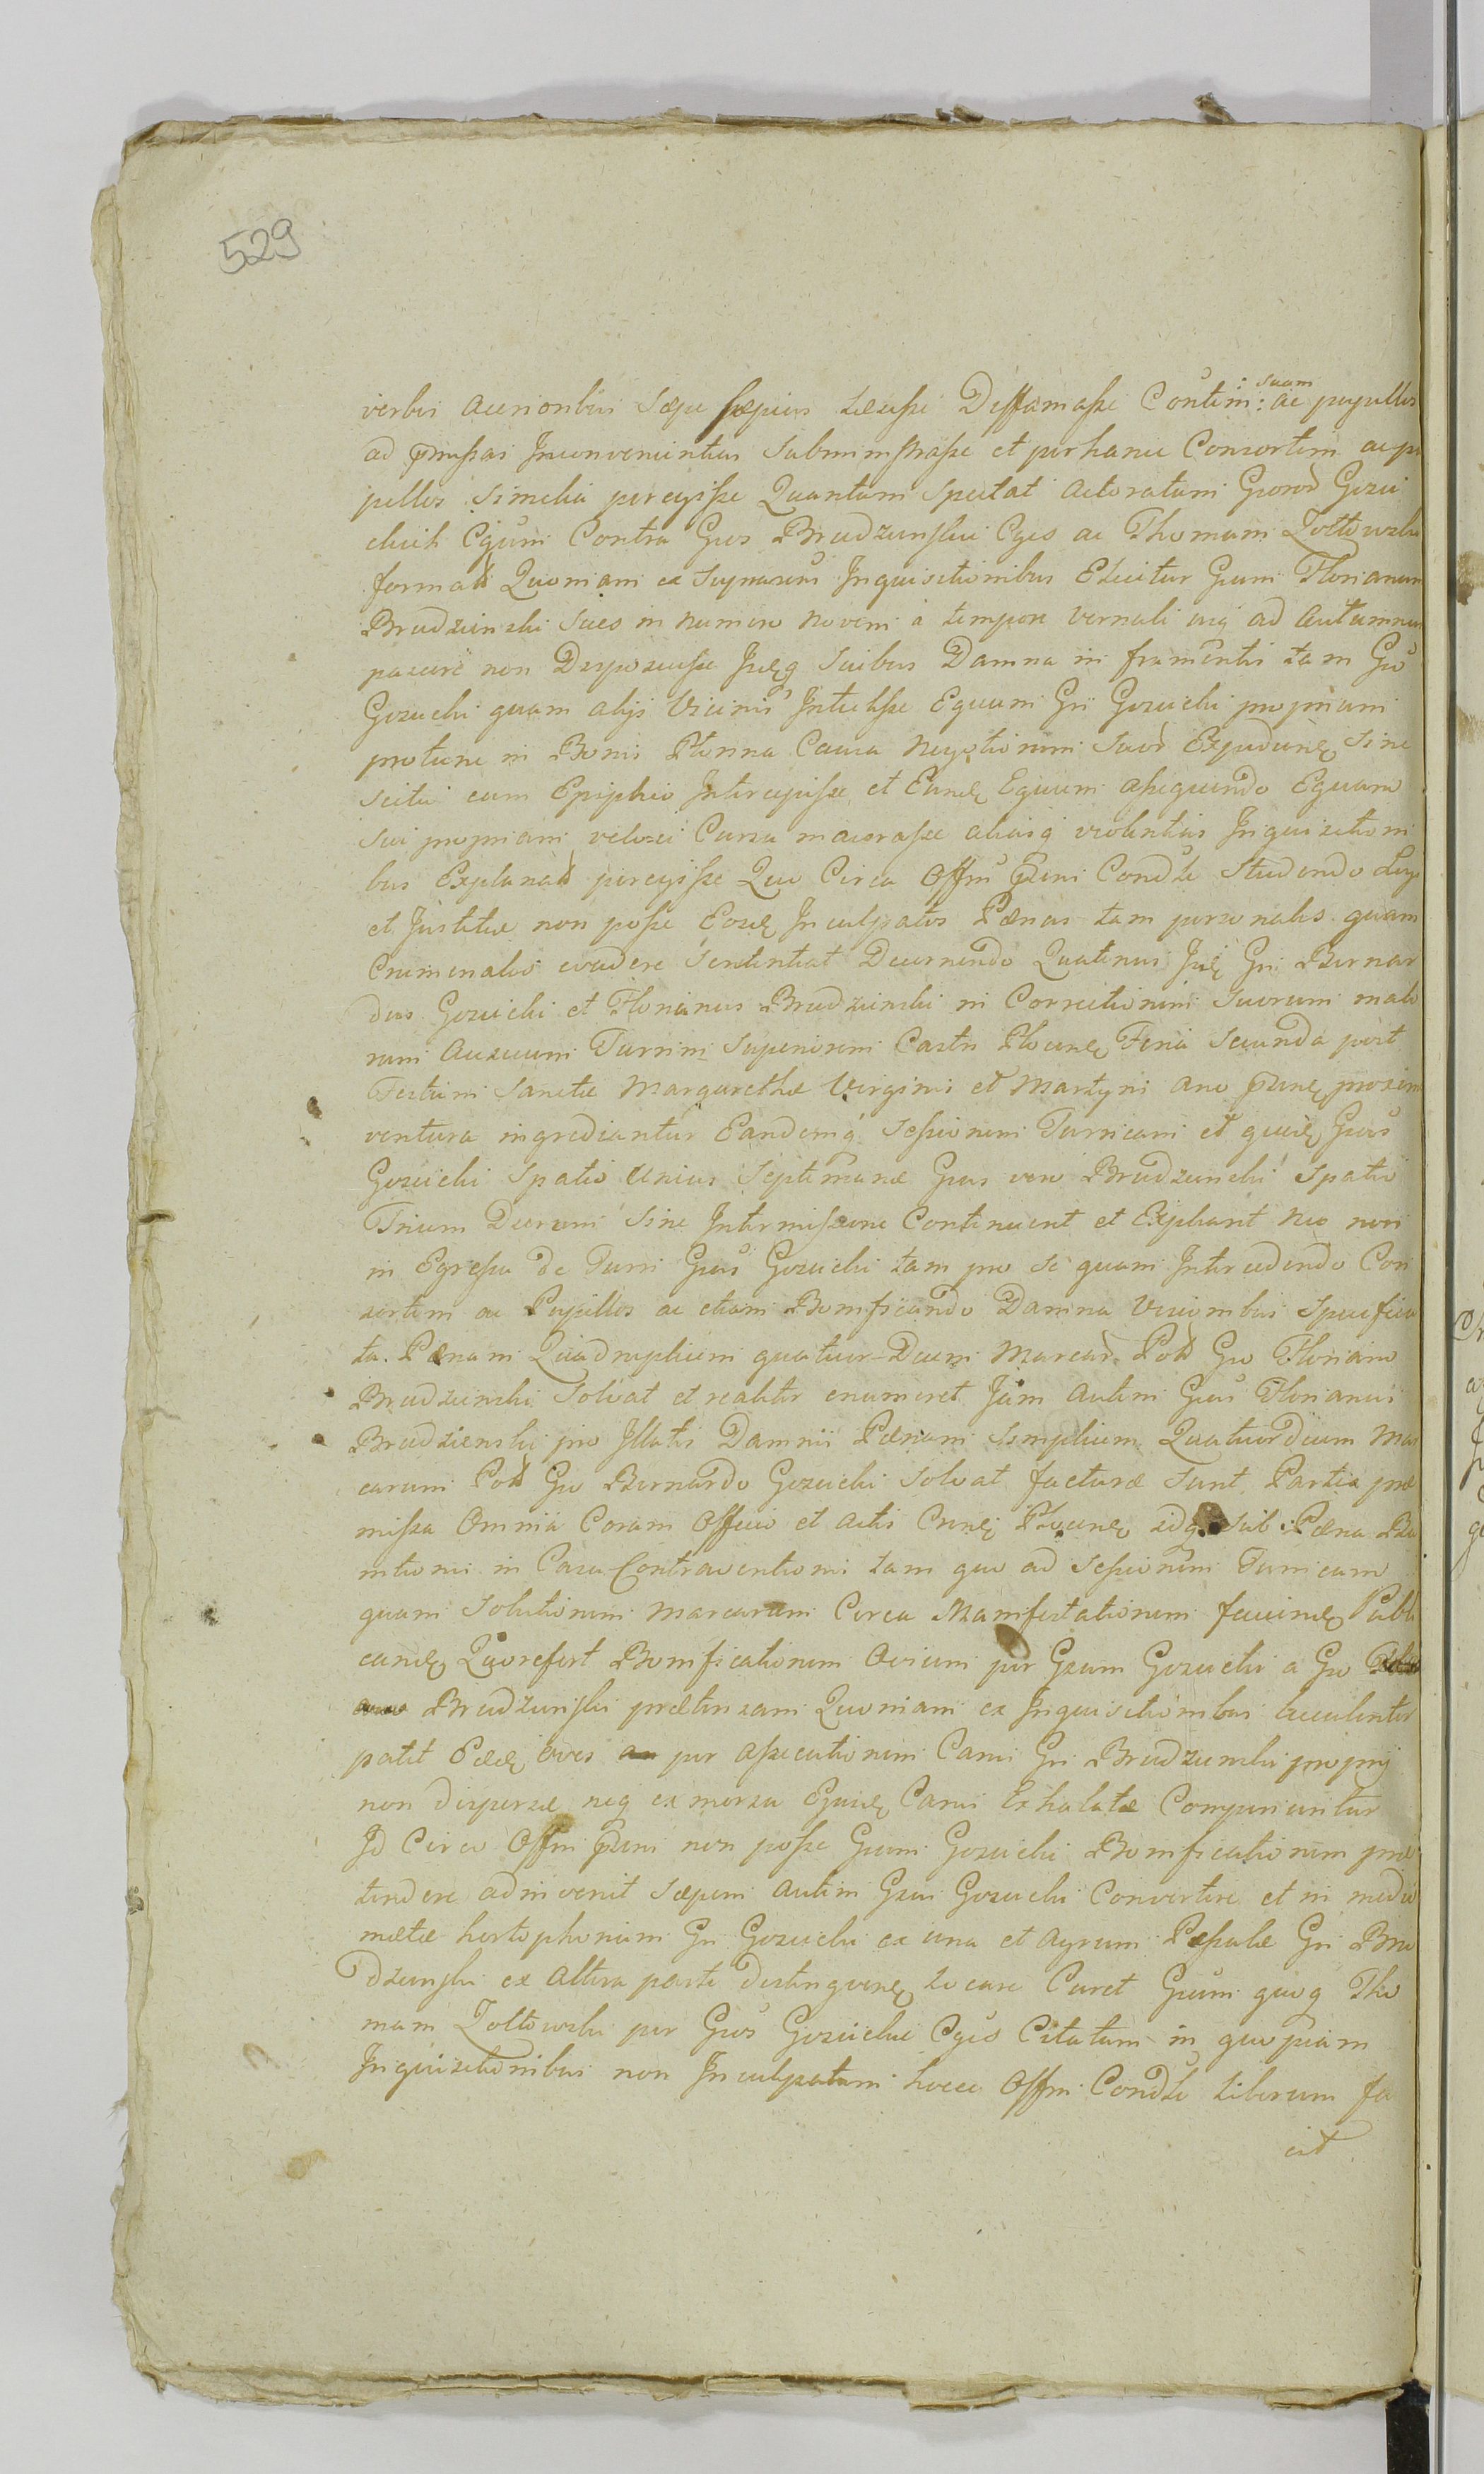 529
verbis acrioribus Sæpe sæpius Læsisse Diffamasse Consortem suam ac pupillos
ad præmissas Inconvenientias Subministrasse et per hanc Consortem ac pu
pillos Similia peregisse Quantum Spectat actoratum Gnorod Gozui
chich Cgum Contra Gnos Brudzinskie Cges ac Thomam Zołtowski
format Quoniam ex Supmemis Inquisitionibus Elicitur Gnum Florianum
Brudzinski Sues in numero novem à tempore vernali usq ad Autumnum
pascere non Deposuisse Ijsdeq Suibus Damna in frumentis tam Gno
Gozuchi quam alijs Vicinis Intulisse Equum Gni Gozuchi proprium
protunc in Bonis Płonna Causa negotiorum Suod Expediend Sine
Scitu cum Ephipio Intercepisse et Eund Equum assequendo Equam
Sui propriam veloci Cursu macerasse aliasq violentias Inquisitioni
bus Explanat peregisse Quo Circa Offm pseni Condle Studendo Legi
et Justitiæ non posse Eosd Inculpatos Pænas tam personales quam
Criminales evadere Sententiat Decernendo Quatenus Jid Gni Bernar
dus Gozuchi et Florianus Brudzinski in Correctionem Suorum malo
rum Ausuum Turrim Superiorem Castri Plocen Feria Secunda post
Festum Sanctæ Margarethæ Virginis et Martyris Ano psen proxime
ventura ingrediantur Eandemq Sessionem Turricam et quid Gnus
Gozuchi Spatio Unius Septimanæ Gnus vero Brudzinski Spatio
Trium Dierum Sine Intermissione Contineant et Expleant nec non
in Egressu de Turri Gnus Gozuchi tam pro se quam Intercedendo Con
sortem ac Pupillos ac etiam Bonificando Damna Visionibus Specifica
ta. Pænam Quadruplicem quatuor Decem Marcar Pol Gno Floriano
Brudzinski Solvat et realiter enumeret Jam autem Gnus Florianus
Brudzienski pro Illatis Damnis Pænam Simplicem Quatuordecim Mar
carum Pol Gno Bernardo Gozuchi Solvat facturæ Sunt Partes præ
missa Omnia Coram Officio et actis Cren Plocen idq Sub Pæna Ba
nitionis in Casu Contraventionis tam quo ad Sessionem Turricam
quam Solutionem marcarum Circa Manifestationem faciend Publi
cand Quo refert Bonificationem Ovium per Gnum Gozuchi a Gno
Brudzinski prætensam Quoniam ex Inquisitionibus luculenter
patet Easd oves per assecutionem Canis Gni Brudzinski proprij
non dispersæ neq ex morsu Ejusd Canis Exhalatæ Comperiuntur
Id Circo Offm pseni non posse Gnum Gozuchi Bonificationem præ
tendere adinvenit Sæpem autem Gnum Gozuchi Convertere et in medie
metæ hortophorium Gni Gozuchi ex una et agrum Gni Bru
dzinski ex Altera parte distinguend locare Curet Gnum quoq Tho
mam Zołtowski per Gnos Gozuchie Cges Citatum in quopiam
Inquisitionibus non Inculpatum hocce Offm Condle Liberum fa
cit